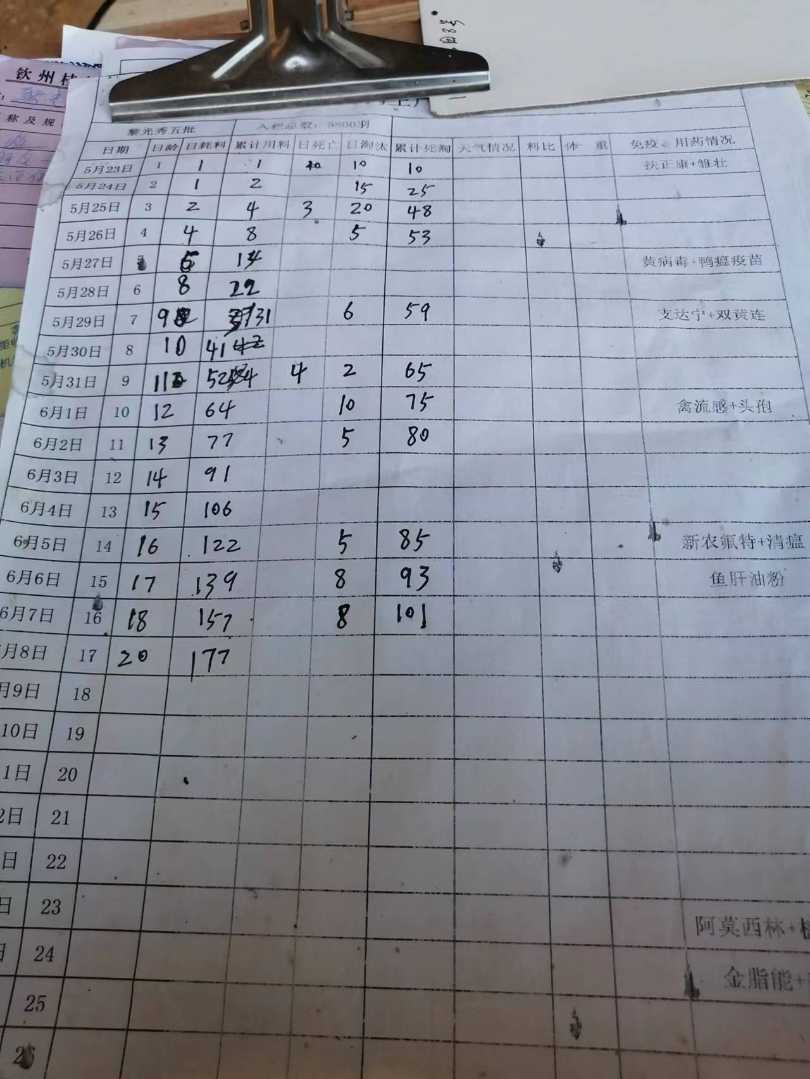 钦州桂
称及规
黎光秀五批 入栏总数：5800羽
日期 日龄 日耗料 累计用料 日死亡 日淘汰 累计死淘 天气情况 料比 体 重 免疫、用药情况
5月23日 1 1 1 10 10 扶正康+雏壮
5月24日 2 1 2 15 25
5月25日 3 2 4 3 20 48
5月26日 4 4 8 5 53
5月27日 5 14 黄病毒+鸭瘟疫苗
5月28日 6 8 22
5月29日 7 9 31 6 59 支达宁+双黄连
5月30日 8 10 41
5月31日 9 11 52 4 2 65
6月1日 10 12 64 10 75 禽流感+头孢
6月2日 11 13 77 5 80
6月3日 12 14 91
6月4日 13 15 106
6月5日 14 16 122 5 85 新农氟特+清瘟
6月6日 15 17 139 8 93 鱼肝油粉
6月7日 16 18 157 8 101
月8日 17 20 177
月9日 18
10日 19
1日 20
2日 21
日 22
日 23 阿莫西林+
日 24 金脂能+
25
26